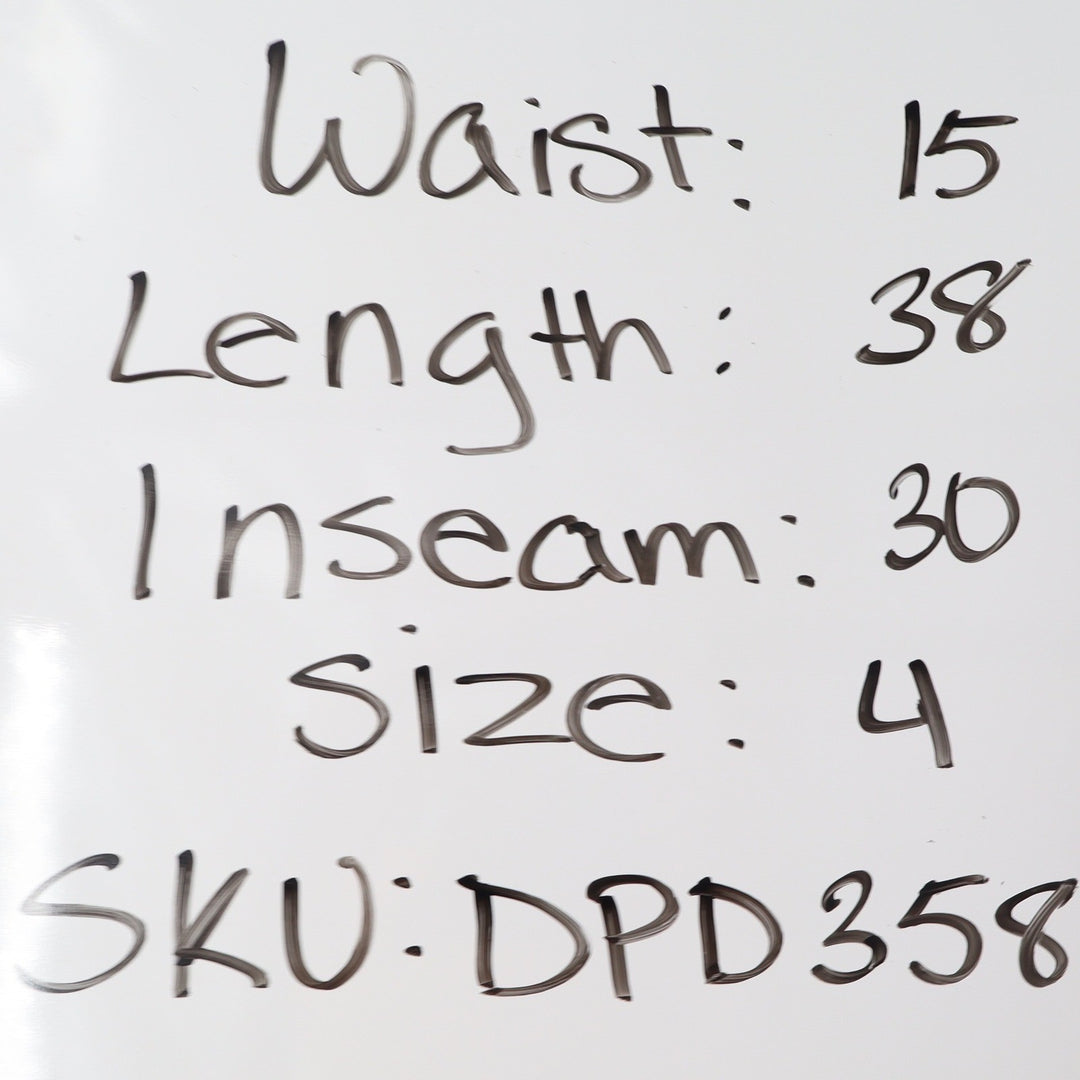 Waist: 15
Length: 38
Inseam: 30
Size: 4
SKU: DPD358